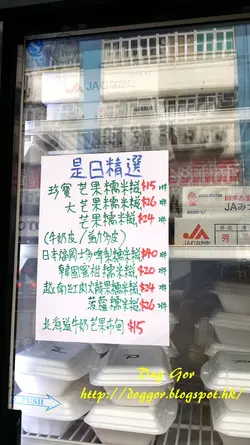 JAむなかた
是日精選
珍寶芒果糯米糍$15
大芒果糯米糍$26
芒果糯米糍$24
(牛奶皮/班力多皮)
日本福岡士多啤梨糯米糍$40
韓國蜜柑糯米糍$20
越南紅肉火龍果糯米糍$24
菠蘿糯米糍$26
北海道牛奶芒果布甸$15
JAみ
JA
秀
PUSH
Dog Gor
http://doggor.blogspot.hk/